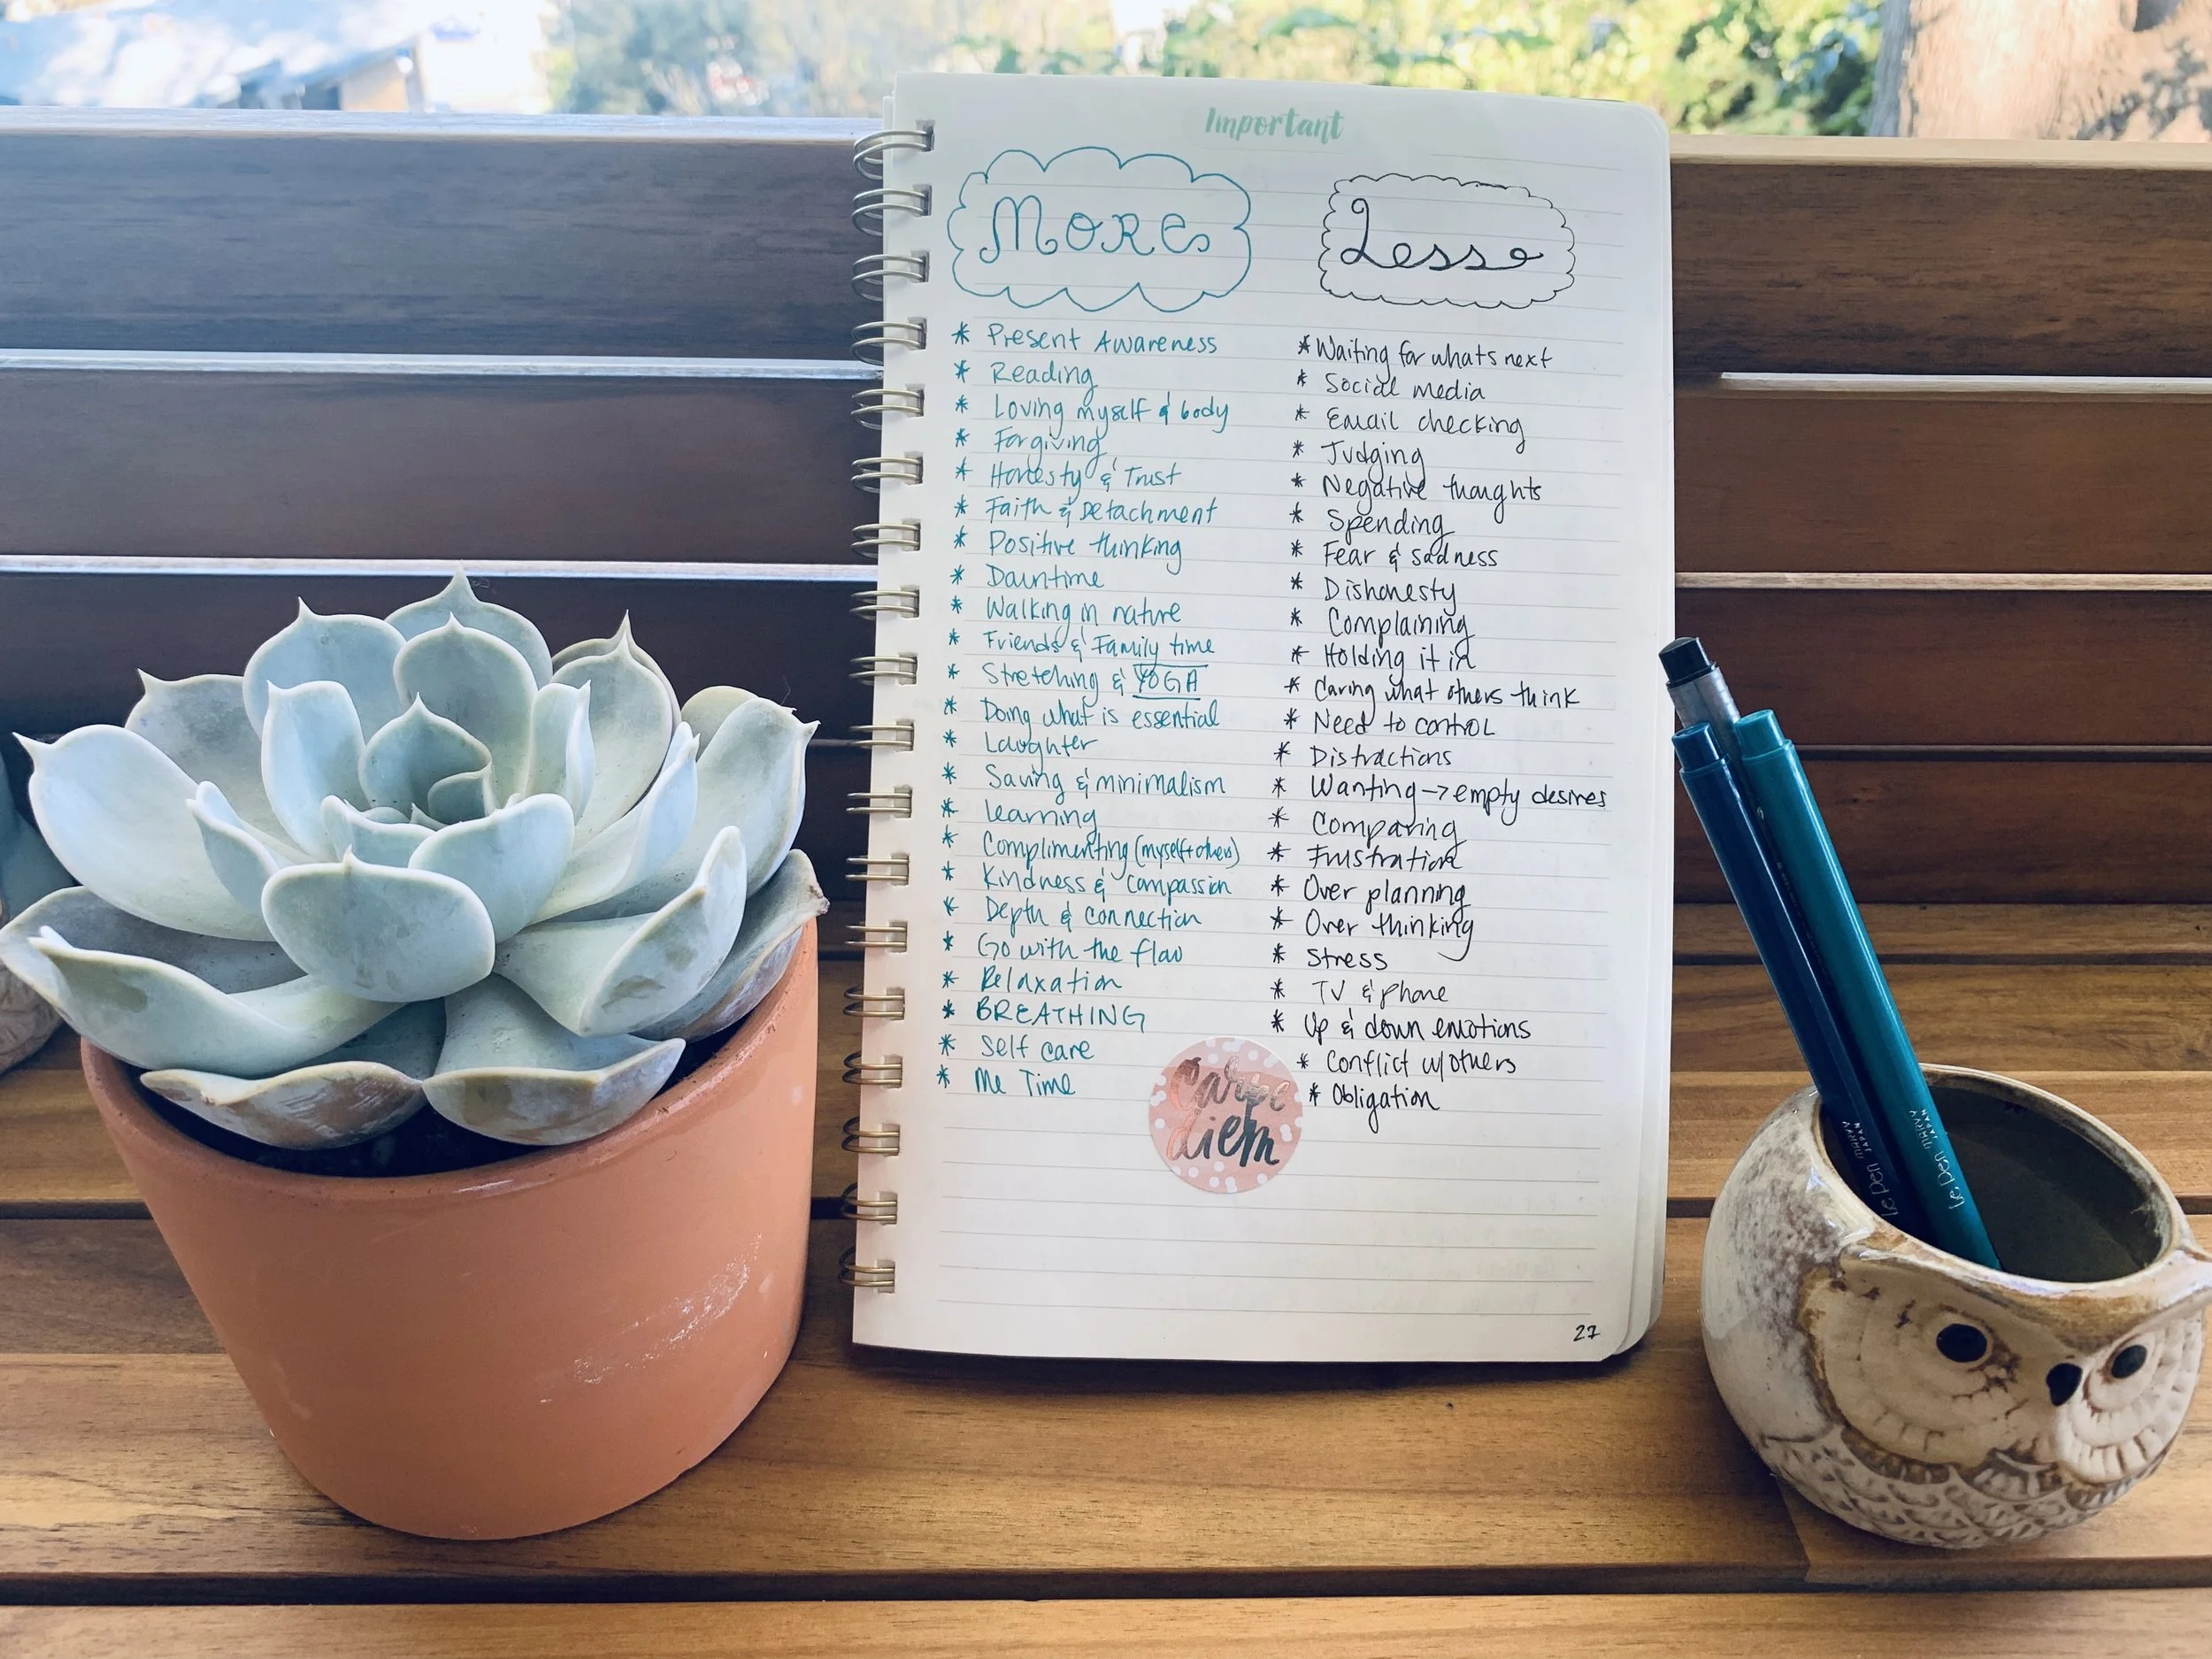 Important
More
* Present Awareness
* Reading
* Loving myself & body
* Forgiving
* Honesty & Trust
* Faith & Detachment
* Positive thinking
* Downtime
* Walking in nature
* Friends & Family time
* Stretching & YOGA
* Doing what is essential
* Laughter
* Saving & minimalism
* Learning
* Complimenting (myself + others)
* Kindness & compassion
* Depth & connection
* Go with the flow
* Relaxation
* BREATHING
* Self care
* Me Time
Less
* Waiting for whats next
* Social media
* Email checking
* Judging
* Negative thoughts
* Spending
* Fear & sadness
* Dishonesty
* Complaining
* Holding it in
* Caring what others think
* Need to control
* Distractions
* Wanting → empty desires
* Comparing
* Frustration
* Over planning
* Over thinking
* Stress
* TV & phone
* Up & down emotions
* Conflict w/others
* Obligation
carpe
diem
27
Le Pen MARVY JAPAN
Le Pen MARVY JAPAN